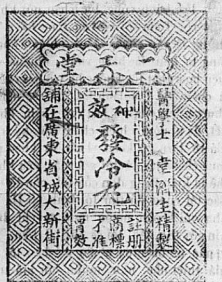 二天堂
醫學士 韋生精製
神效
發冷丸
註冊
商標
才准
有效
舖在廣東省城大新街